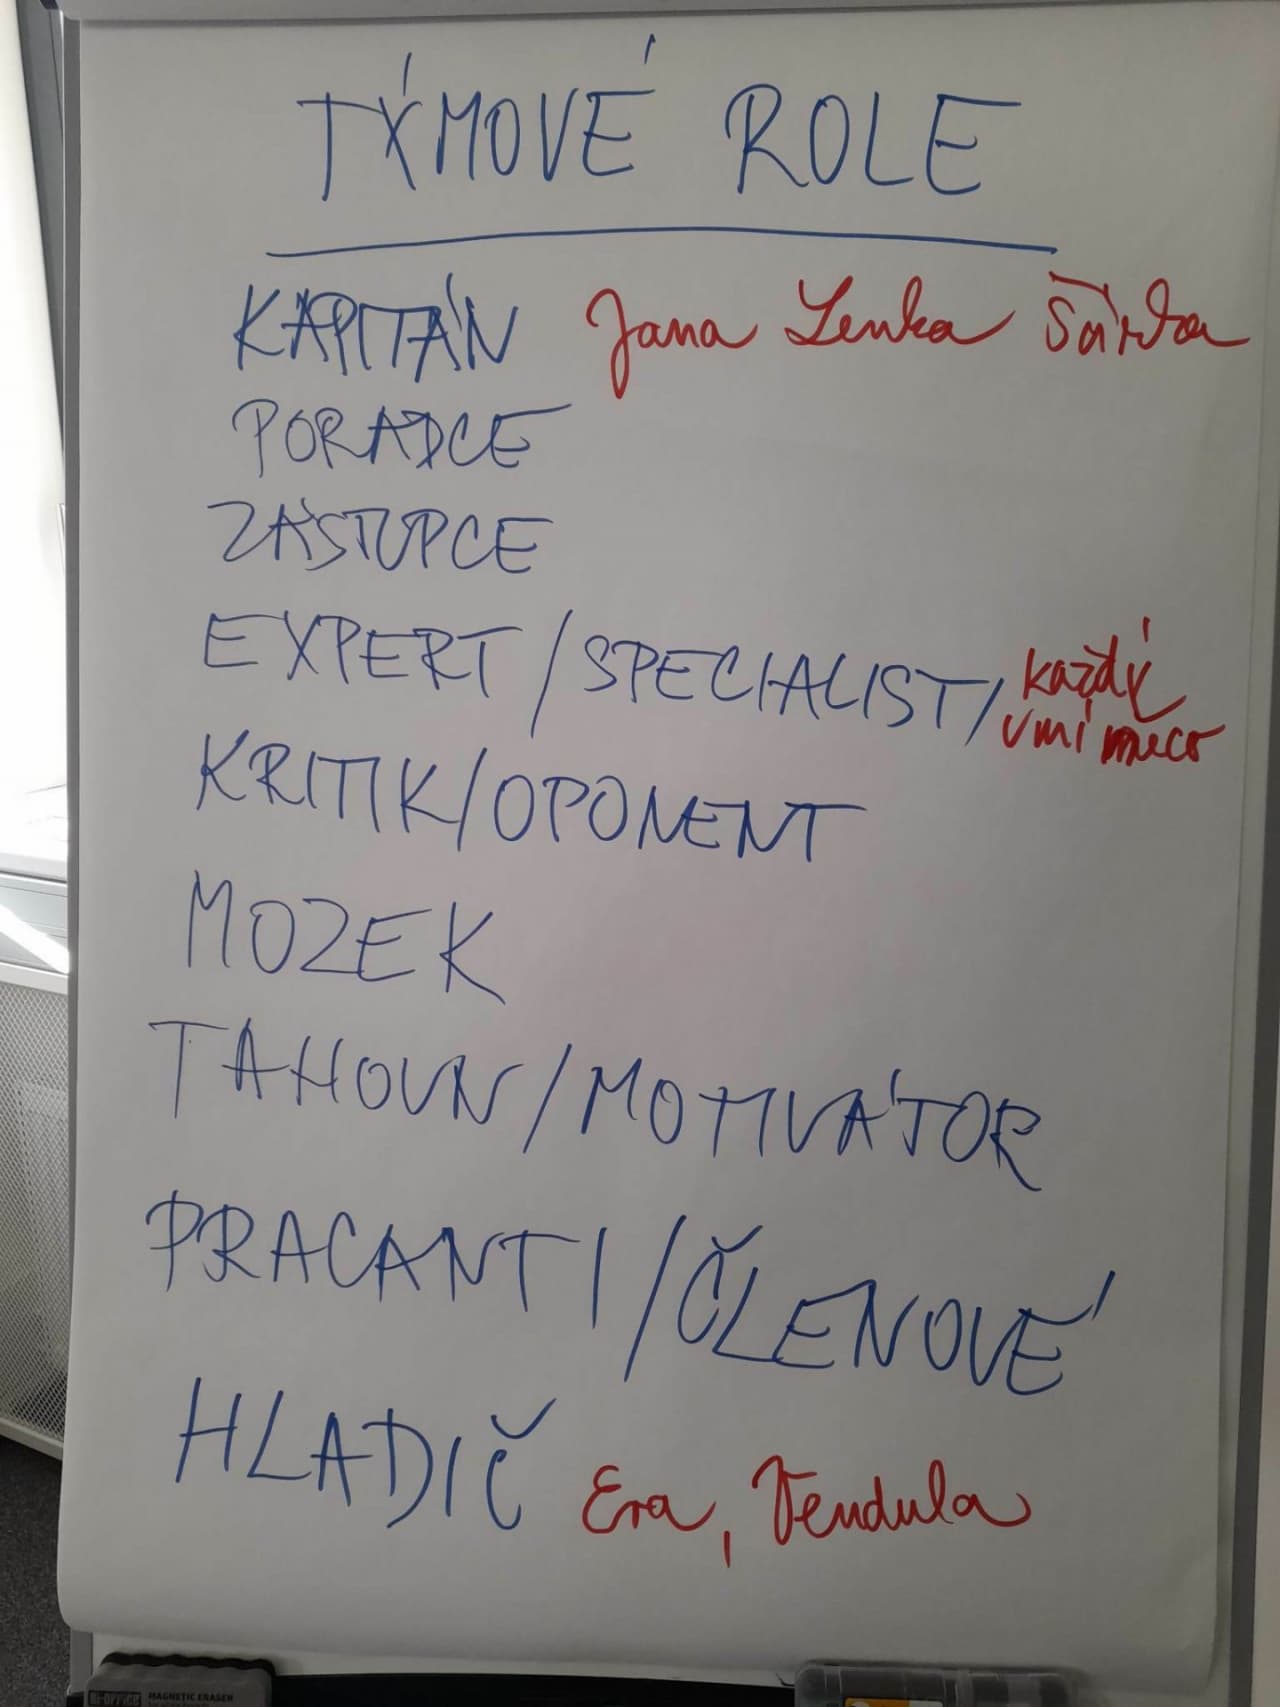 TÝMOVÉ ROLE
KAPITÁN Jana Lenka Šárka
PORADCE
ZÁSTUPCE
EXPERT/SPECIALIST/každý
umí něco
KRITIK/OPONENT
MOZEK
TAHOUN/MOTIVÁTOR
PRACANTI/ČLENOVÉ
HLADIČ Eva, Vendula
BI-OFFICE MAGNETIC ERASER